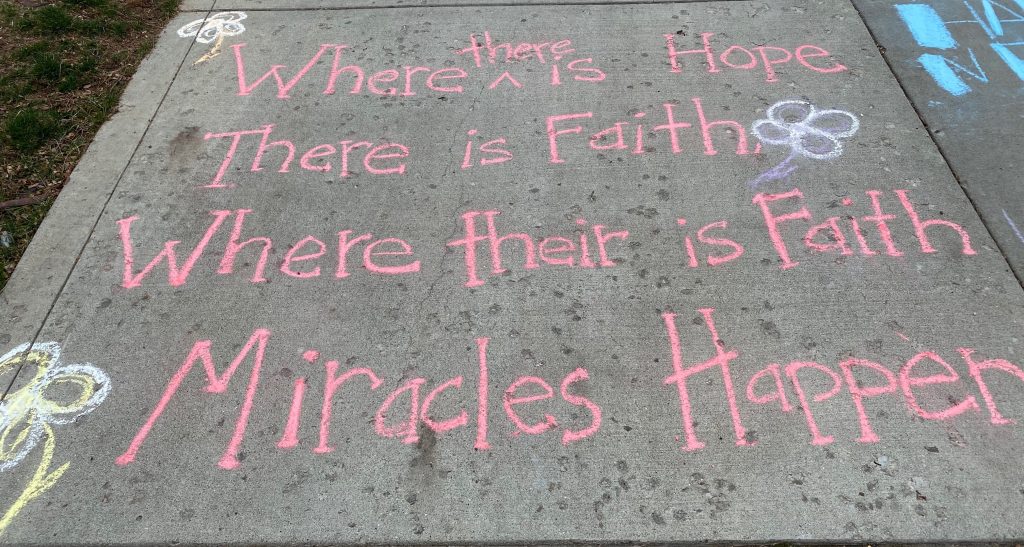 Where there is Hope
There is Faith,
Where their is Faith
Miracles Happen